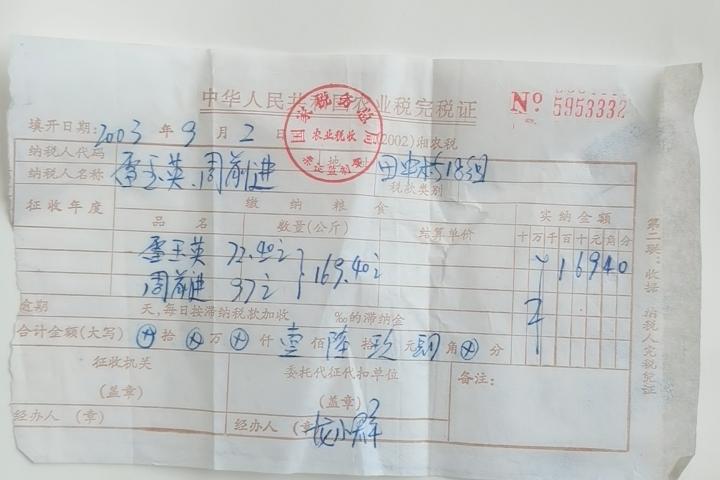 中华人民共和国农业税完税证
No 5953332
国家税务总局
农业税收
票证监制章
填开日期:2003年9月2日
(2002)湘农税
纳税人代码
地址
田
18组
纳税人名称
雷玉英、周前进
税款类别
征收年度
缴纳粮食
实纳金额
品名
数量(公斤)
结算单价
十万千百十元角分
雷玉英 72.40
169.40
¥16940
周前进 97
逾期 天,每日按滞纳税款加收 ‰的滞纳金
合计金额(大写)⊗拾⊗万⊗仟壹佰陆拾玖元肆角⊗分
征收机关
(盖章)
委托代征代扣单位
(盖章)
备注:
经办人(章)
经办人(章)
第二联:收据 纳税人完税凭证